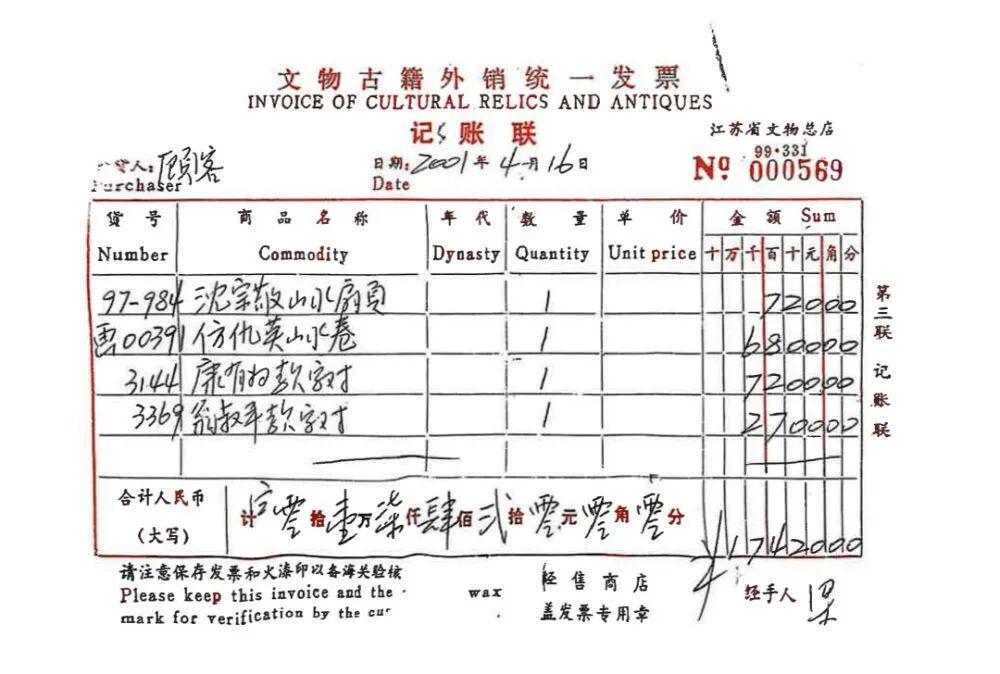 文物古籍外销统一发票
INVOICE OF CULTURAL RELICS AND ANTIQUES
记账联
江苏省文物总店
货人: 顾客 日期: 2001年4月16日 99·331
Purchaser Date Nº 000569
货号 商品名称 年代 数量 单价 金额 Sum
Number Commodity Dynasty Quantity Unit price 十万千百十元角分
97-984 沈宗敬山水扇页 1 72000
画00391 仿仇英山水卷 1 680000
3144 康有为款字对 1 720000
3369 翁叔平款字对 1 270000
合计人民币 计零拾壹万柒仟肆佰贰拾零元零角零分
(大写) ¥1742000
请注意保存发票和火漆印以备海关验核 经售商店 经手人
Please keep this invoice and the wax 盖发票专用章
mark for verification by the cu
第三联 记账联